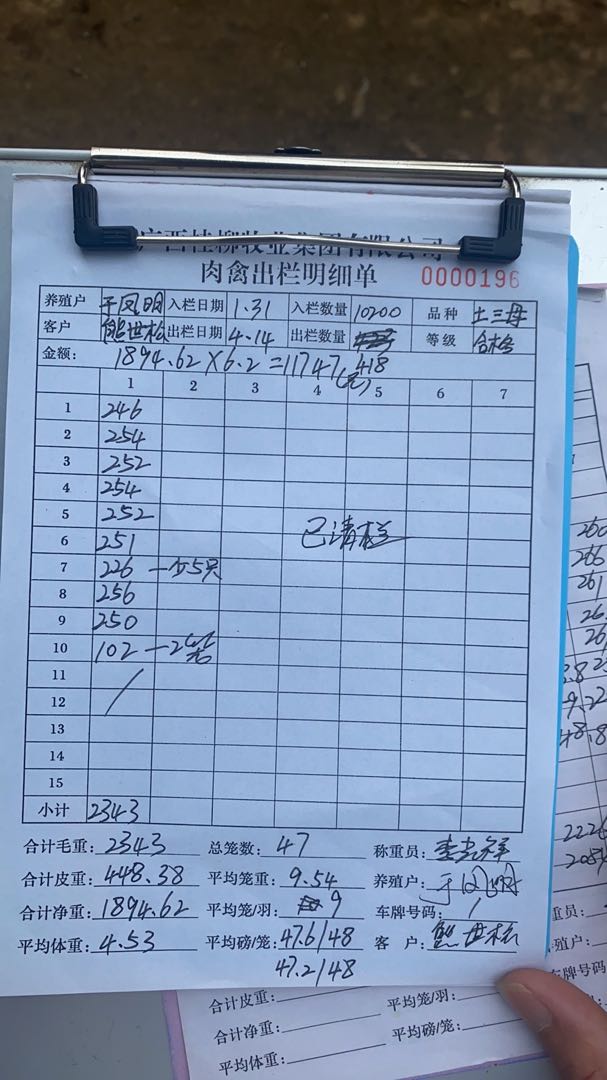 广西桂柳牧业集团有限公司
肉禽出栏明细单 0000196
养殖户 于凤明 入栏日期 1.31 入栏数量 10200 品种 土三号
客户 熊世松 出栏日期 4.14 出栏数量 等级 合格
金额: 1894.62×6.2=11747.418(元)
1 2 3 4 5 6 7
1 246
2 254
3 252
4 254
5 252
6 251 已清栏
7 226 一少5只
8 256
9 250
10 102 一2笼
11 /
12
13
14
15
小计 2343
合计毛重: 2343 总笼数: 47 称重员:
合计皮重: 448.38 平均笼重: 9.54 养殖户:
合计净重: 1894.62 平均笼/羽: 9 车牌号码: /
平均体重: 4.53 平均磅/笼: 47.6/48 客 户: 熊世松
47.2/48
260
266
261
合计皮重: 平均笼/羽:
合计净重: 平均磅/笼:
平均体重:
车牌号码